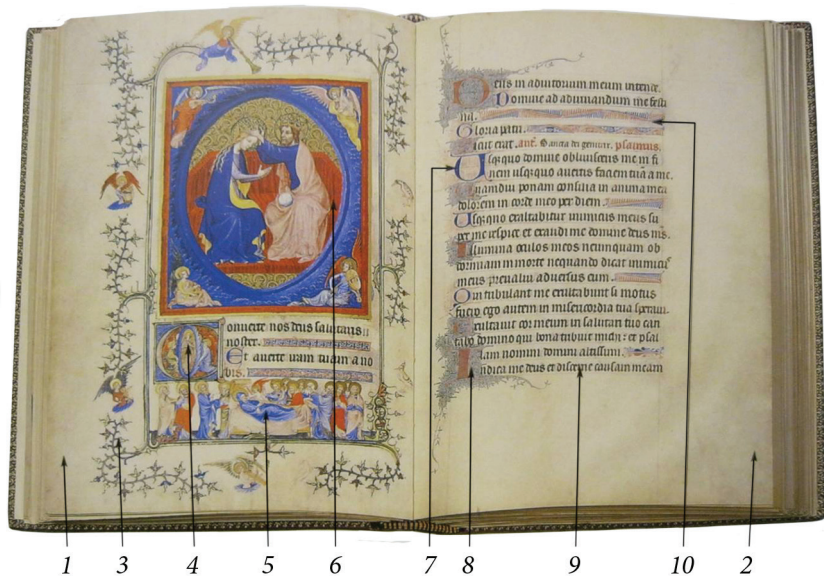 onuerte nos deus salutaris
noster.
Et auerte iram tuam a no
bis.
Deus in adiutorium meum intende.
Domine ad adiuuandum me festi
na.
Gloria patri.
Sicut erat. ant. Sancta dei genitrix. psalmus.
Usquequo domine obliuisceris me in fi
nem usquequo auertis faciem tuam a me.
Quamdiu ponam consilia in anima mea
dolorem in corde meo per diem.
Usquequo exaltabitur inimicus meus su
per me respice et exaudi me domine deus
Illumina oculos meos ne umquam ob
dormiam in morte nequando dicat inimicus
meus preualui aduersus eum.
Qui tribulant me exultabunt si motus
fuero ego autem in misericordia tua speraui.
Exultauit cor meum in salutari tuo can
tabo domino qui bona tribuit michi: et psal
lam nomini domini altissimi.
Iudica me deus et discerne causam meam
1 3 4 5 6 7 8 9 10 2